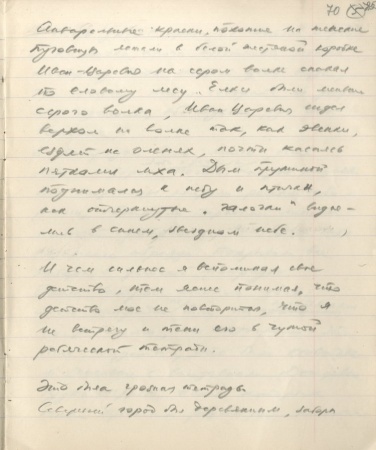 70
Акварельные краски, похожие на женские
пуговицы лежали в белой жестяной коробке
Иван-Царевич на сером волке скакал
по еловому лесу. Елки были меньше
серого волка, Иван Царевич сидел
верхом на волке так, как эвенки,
ездят на оленях, почти касаясь
пятками мха. Дым пружиной
поднимался к небу и птички,
как отчеркнутые „галочки" видне-
лись в синем, звездном небе.
И чем сильнее я вспоминал свое
детство, тем яснее понимал, что
детство мое не повторится, что я
не встречу и тени его в чужой
ребяческой тетради.
Это была грозная тетрадь
Северный город был деревянным, заборы